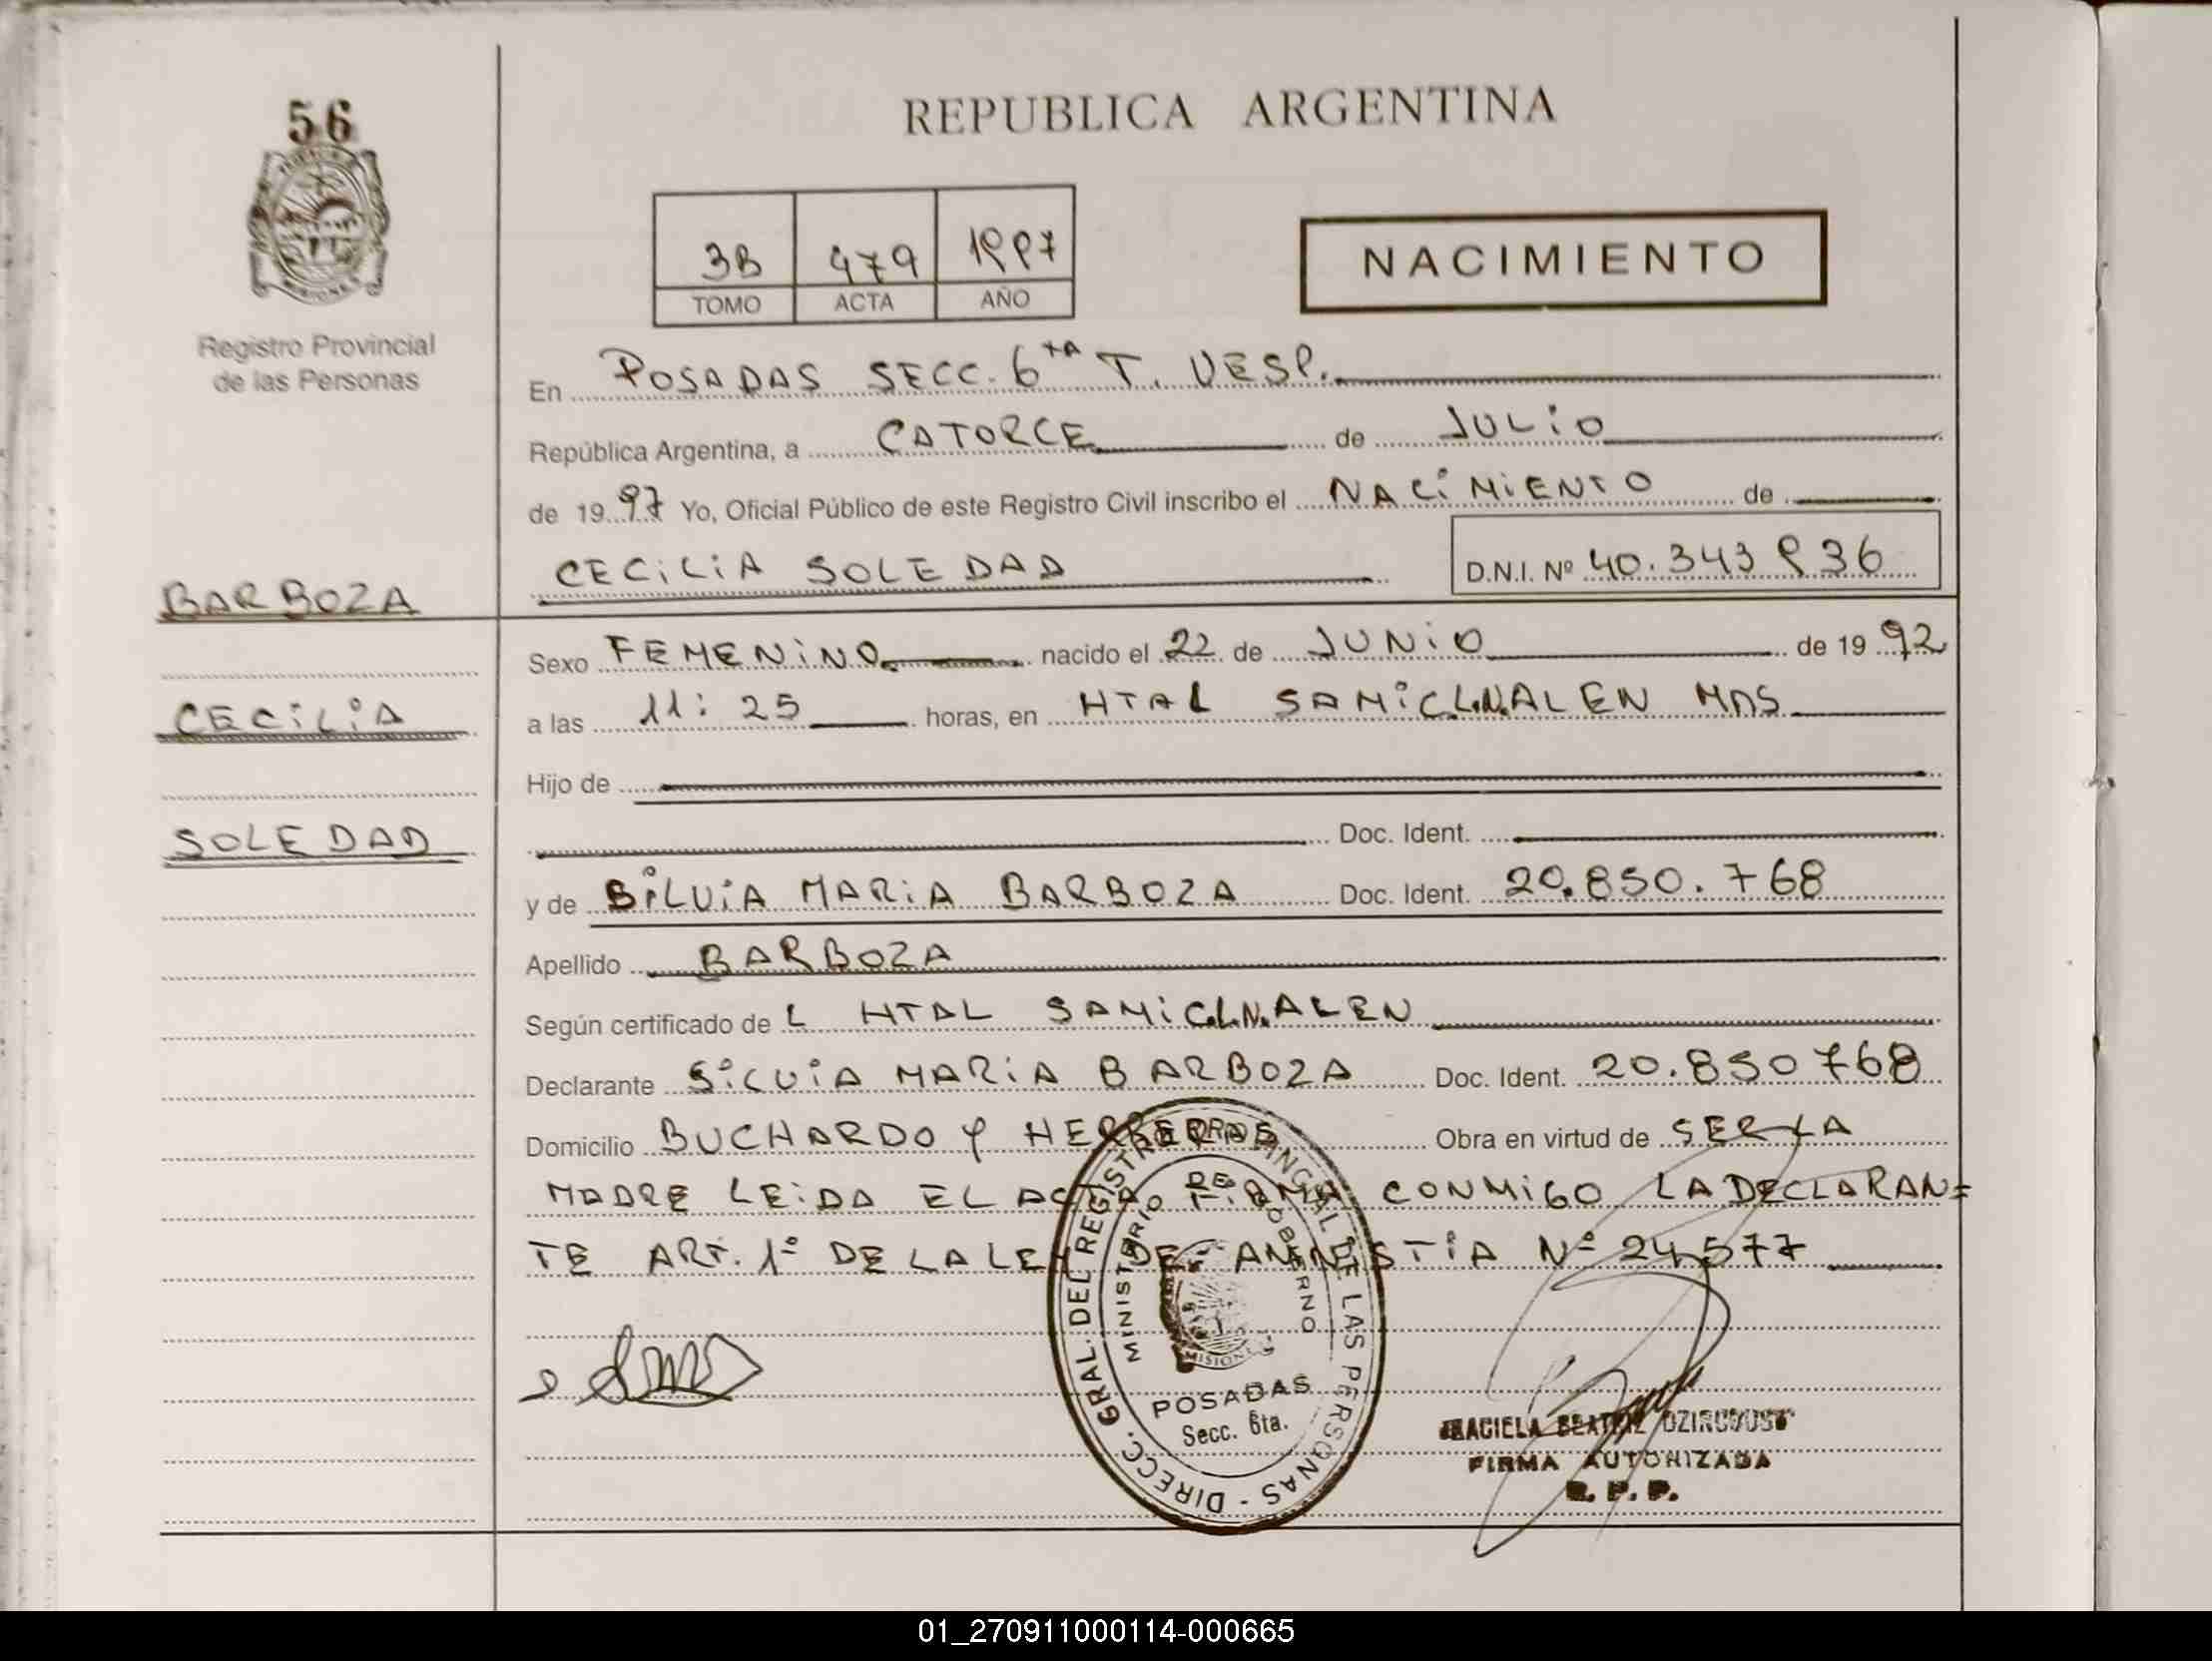 56
REPUBLICA ARGENTINA
3B 479 1997
TOMO ACTA AÑO
NACIMIENTO
MISIONES
Registro Provincial
de las Personas
En POSADAS SECC. 6ta T. VESP.
República Argentina, a CATORCE de JULIO
de 1997 Yo, Oficial Público de este Registro Civil inscribo el NACIMIENTO de
CECILIA SOLEDAD D.N.I. Nº 40.343 936
BARBOZA
Sexo FEMENINO nacido el 22 de JUNIO de 1992
CECILIA
a las 11:25 horas, en HTAL SAMIC L.N.ALEN MNS
Hijo de
SOLEDAD
Doc. Ident.
y de SILVIA MARIA BARBOZA Doc. Ident. 20.850.768
Apellido BARBOZA
Según certificado de L HTAL SAMIC L.N.ALEN
Declarante SILVIA MARIA BARBOZA Doc. Ident. 20.850768
Domicilio BUCHARDO Y HERRERAS Obra en virtud de SER LA
MADRE LEIDA EL ACTA FIRMA CONMIGO LA DECLARAN=
TE ART. 1º DE LA LEY DE AMNISTIA Nº 24577
DIRECC. GRAL. DEL REGISTRO PROVINCIAL DE LAS PERSONAS
MINISTERIO DE GOBIERNO
MISIONES
POSADAS
Secc. 6ta.
GRACIELA BEATRIZ
FIRMA AUTORIZADA
R. P. P.
01_270911000114-000665